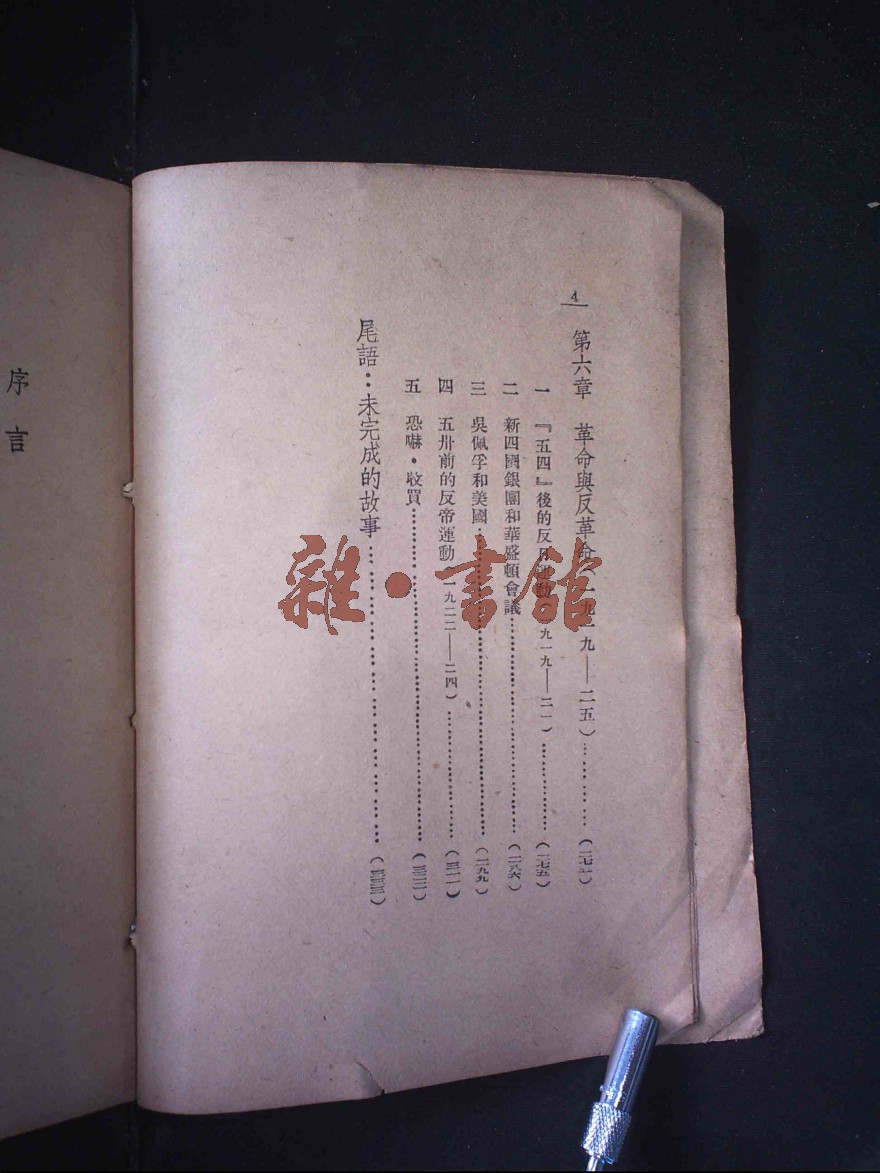 4
第六章 革命與反革命（一九一九——二五）…………（二七一）
一 『五四』後的反日運動（一九一九——二一）…………（二七五）
二 新四國銀團和華盛頓會議…………（二八六）
三 吳佩孚和美國…………（二九九）
四 五卅前的反帝運動（一九二二——二四）…………
五 恐嚇・收買…………
尾語：未完成的故事…………
序言
雜・書館